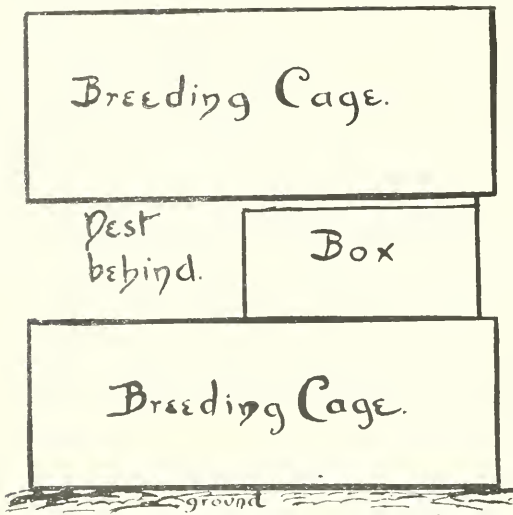 Breeding Cage.
Nest
behind.
Box
Breeding Cage.
ground